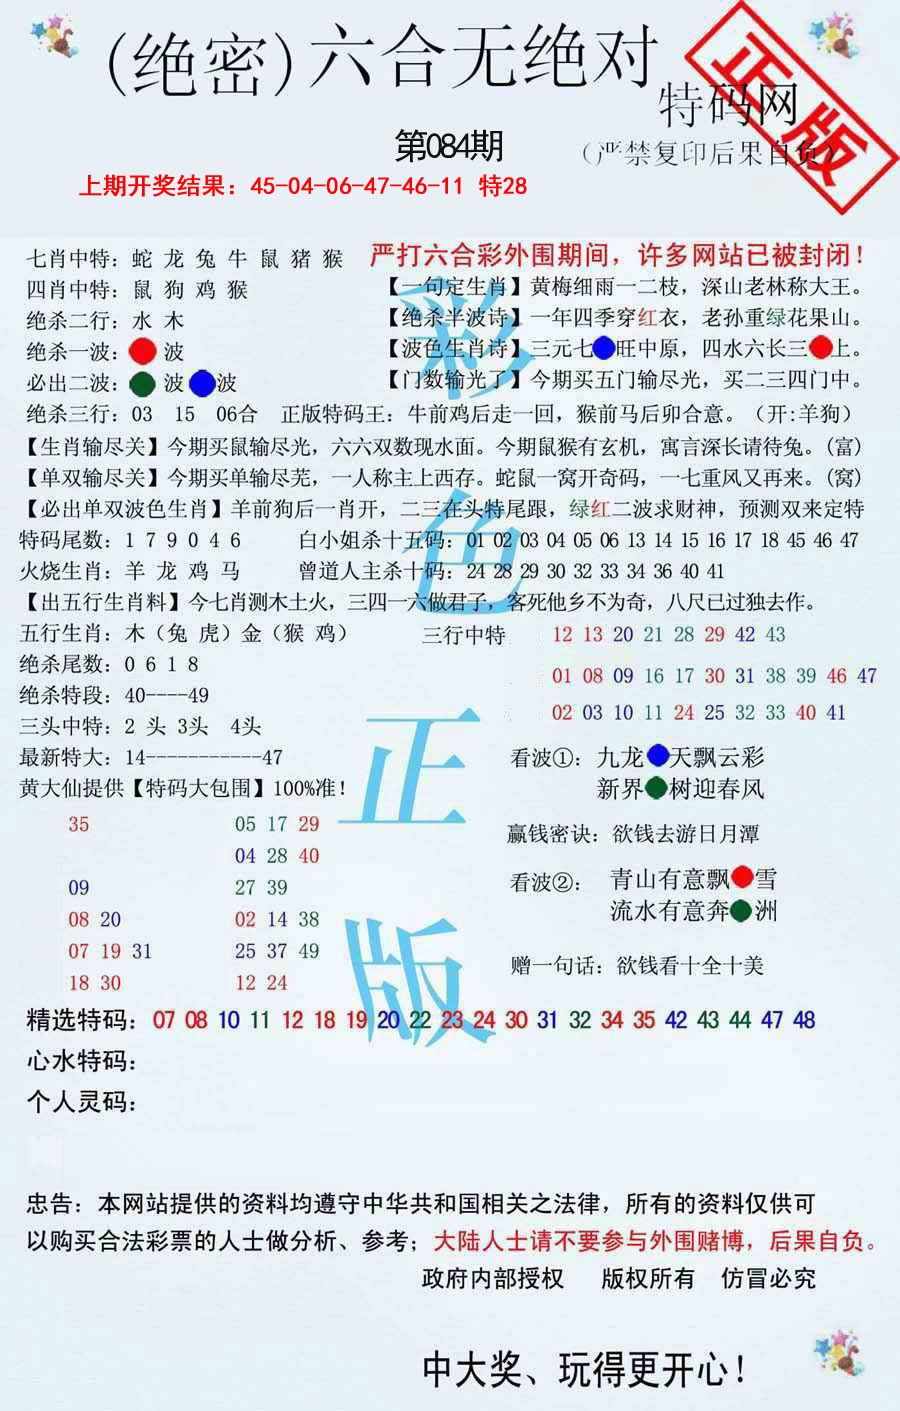 (绝密)六合无绝对
特码网
正版
第084期
(严禁复印后果自负)
上期开奖结果：45-04-06-47-46-11 特28
七肖中特：蛇 龙 兔 牛 鼠 猪 猴
严打六合彩外围期间，许多网站已被封闭！
四肖中特：鼠 狗 鸡 猴
【一句定生肖】黄梅细雨一二枝，深山老林称大王。
绝杀二行：水 木
【绝杀半波诗】一年四季穿红衣，老孙重绿花果山。
绝杀一波： 波
【波色生肖诗】三元七 旺中原，四水六长三 上。
必出二波： 波 波
【门数输光了】今期买五门输尽光，买二三四门中。
绝杀三行：03 15 06合 正版特码王：牛前鸡后走一回，猴前马后卯合意。（开:羊狗）
【生肖输尽关】今期买鼠输尽光，六六双数现水面。今期鼠猴有玄机，寓言深长请待兔。(富)
【单双输尽关】今期买单输尽芜，一人称主上西存。蛇鼠一窝开奇码，一七重风又再来。(窝)
【必出单双波色生肖】羊前狗后一肖开，二三在头特尾跟，绿红二波求财神，预测双来定特
特码尾数：1 7 9 0 4 6 白小姐杀十五码：01 02 03 04 05 06 13 14 15 16 17 18 45 46 47
火烧生肖：羊 龙 鸡 马 曾道人主杀十码：24 28 29 30 32 33 34 36 40 41
【出五行生肖料】今七肖测木土火，三四一六做君子，客死他乡不为奇，八尺已过独去作。
五行生肖：木（兔 虎）金（猴 鸡） 三行中特 12 13 20 21 28 29 42 43
绝杀尾数：0 6 1 8
01 08 09 16 17 30 31 38 39 46 47
绝杀特段：40----49
02 03 10 11 24 25 32 33 40 41
三头中特：2 头 3头 4头
最新特大：14-----------47
看波①：九龙 天飘云彩
新界 树迎春风
黄大仙提供【特码大包围】100%准！
35 05 17 29
赢钱密诀：欲钱去游日月潭
04 28 40
看波②： 青山有意飘 雪
09 27 39
流水有意奔 洲
08 20 02 14 38
07 19 31 25 37 49
赠一句话：欲钱看十全十美
18 30 12 24
精选特码：07 08 10 11 12 18 19 20 22 23 24 30 31 32 34 35 42 43 44 47 48
心水特码：
个人灵码：
彩色正版
忠告：本网站提供的资料均遵守中华共和国相关之法律，所有的资料仅供可
以购买合法彩票的人士做分析、参考；大陆人士请不要参与外围赌博，后果自负。
政府内部授权 版权所有 仿冒必究
中大奖、玩得更开心！